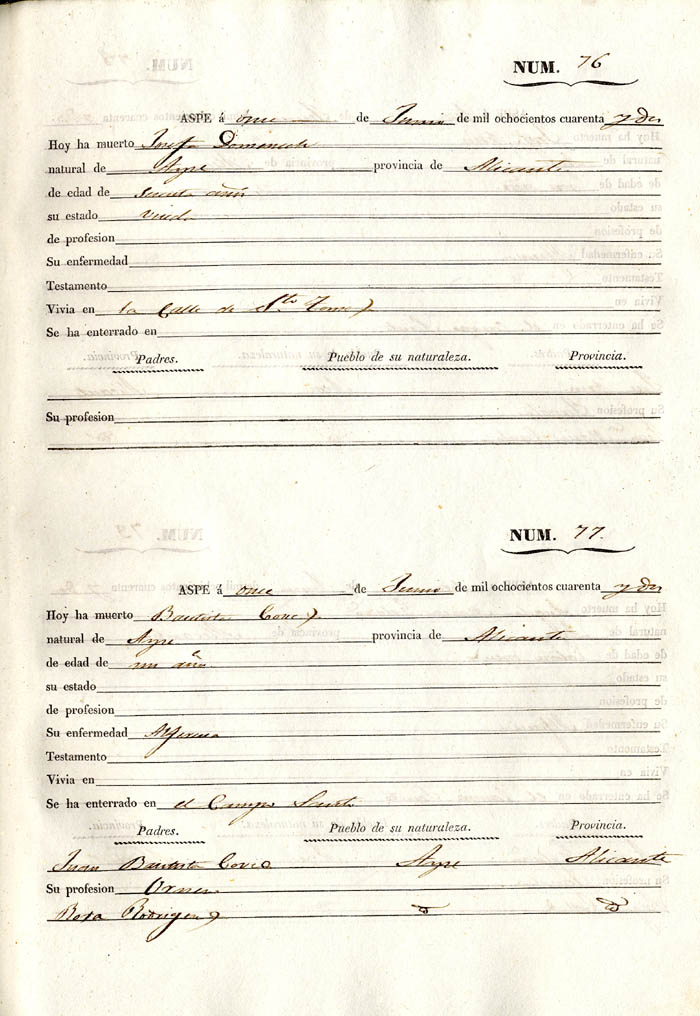 NUM. 76
ASPE á once de Junio de mil ochocientos cuarenta y dos
Hoy ha muerto Josefa
natural de Aspe provincia de Alicante
de edad de años
su estado viuda
de profesion
Su enfermedad
Testamento
Vivia en la Calle de Sto
Se ha enterrado en
Padres. Pueblo de su naturaleza. Provincia.
Su profesion
NUM. 77.
ASPE á once de Junio de mil ochocientos cuarenta y dos
Hoy ha muerto Bautista
natural de Aspe provincia de Alicante
de edad de un año
su estado
de profesion
Su enfermedad
Testamento
Vivia en
Se ha enterrado en el Campo Santo
Padres. Pueblo de su naturaleza. Provincia.
Juan Bautista Aspe Alicante
Su profesion
Rosa